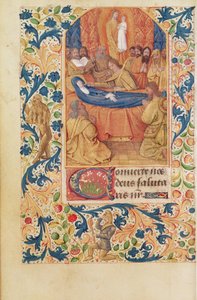 Conuerte nos
deus saluta
ris nr̃